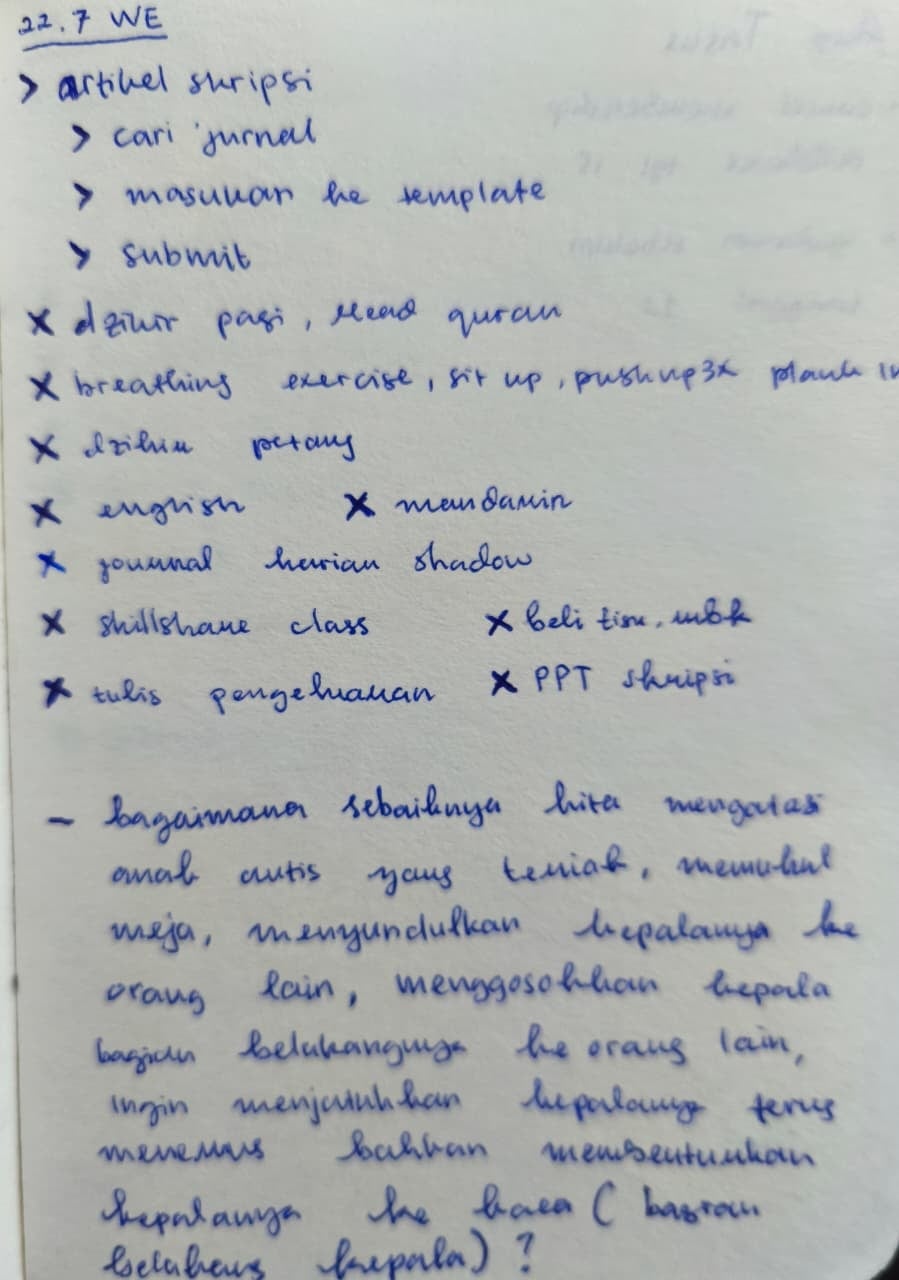 22.7 WE
> artikel skripsi
> cari jurnal
> masukan ke template
> submit
x dzikir pagi, read quran
x breathing exercise, sit up, push up 3x plank
x dzikir petang
x english x mandarin
x journal harian shadow
x skillshare class x beli tisu, mbk
x tulis pengeluaran x PPT skripsi
- bagaimana sebaiknya kita mengatasi
anak autis yang teriak, memukul
meja, menyundulkan kepalanya ke
orang lain, menggosokkan kepala
bagian belakangnya ke orang lain,
ingin menjatuhkan kepalanya terus
menerus bahkan membenturkan
kepalanya ke kaca (bagian
belakang kepala)?